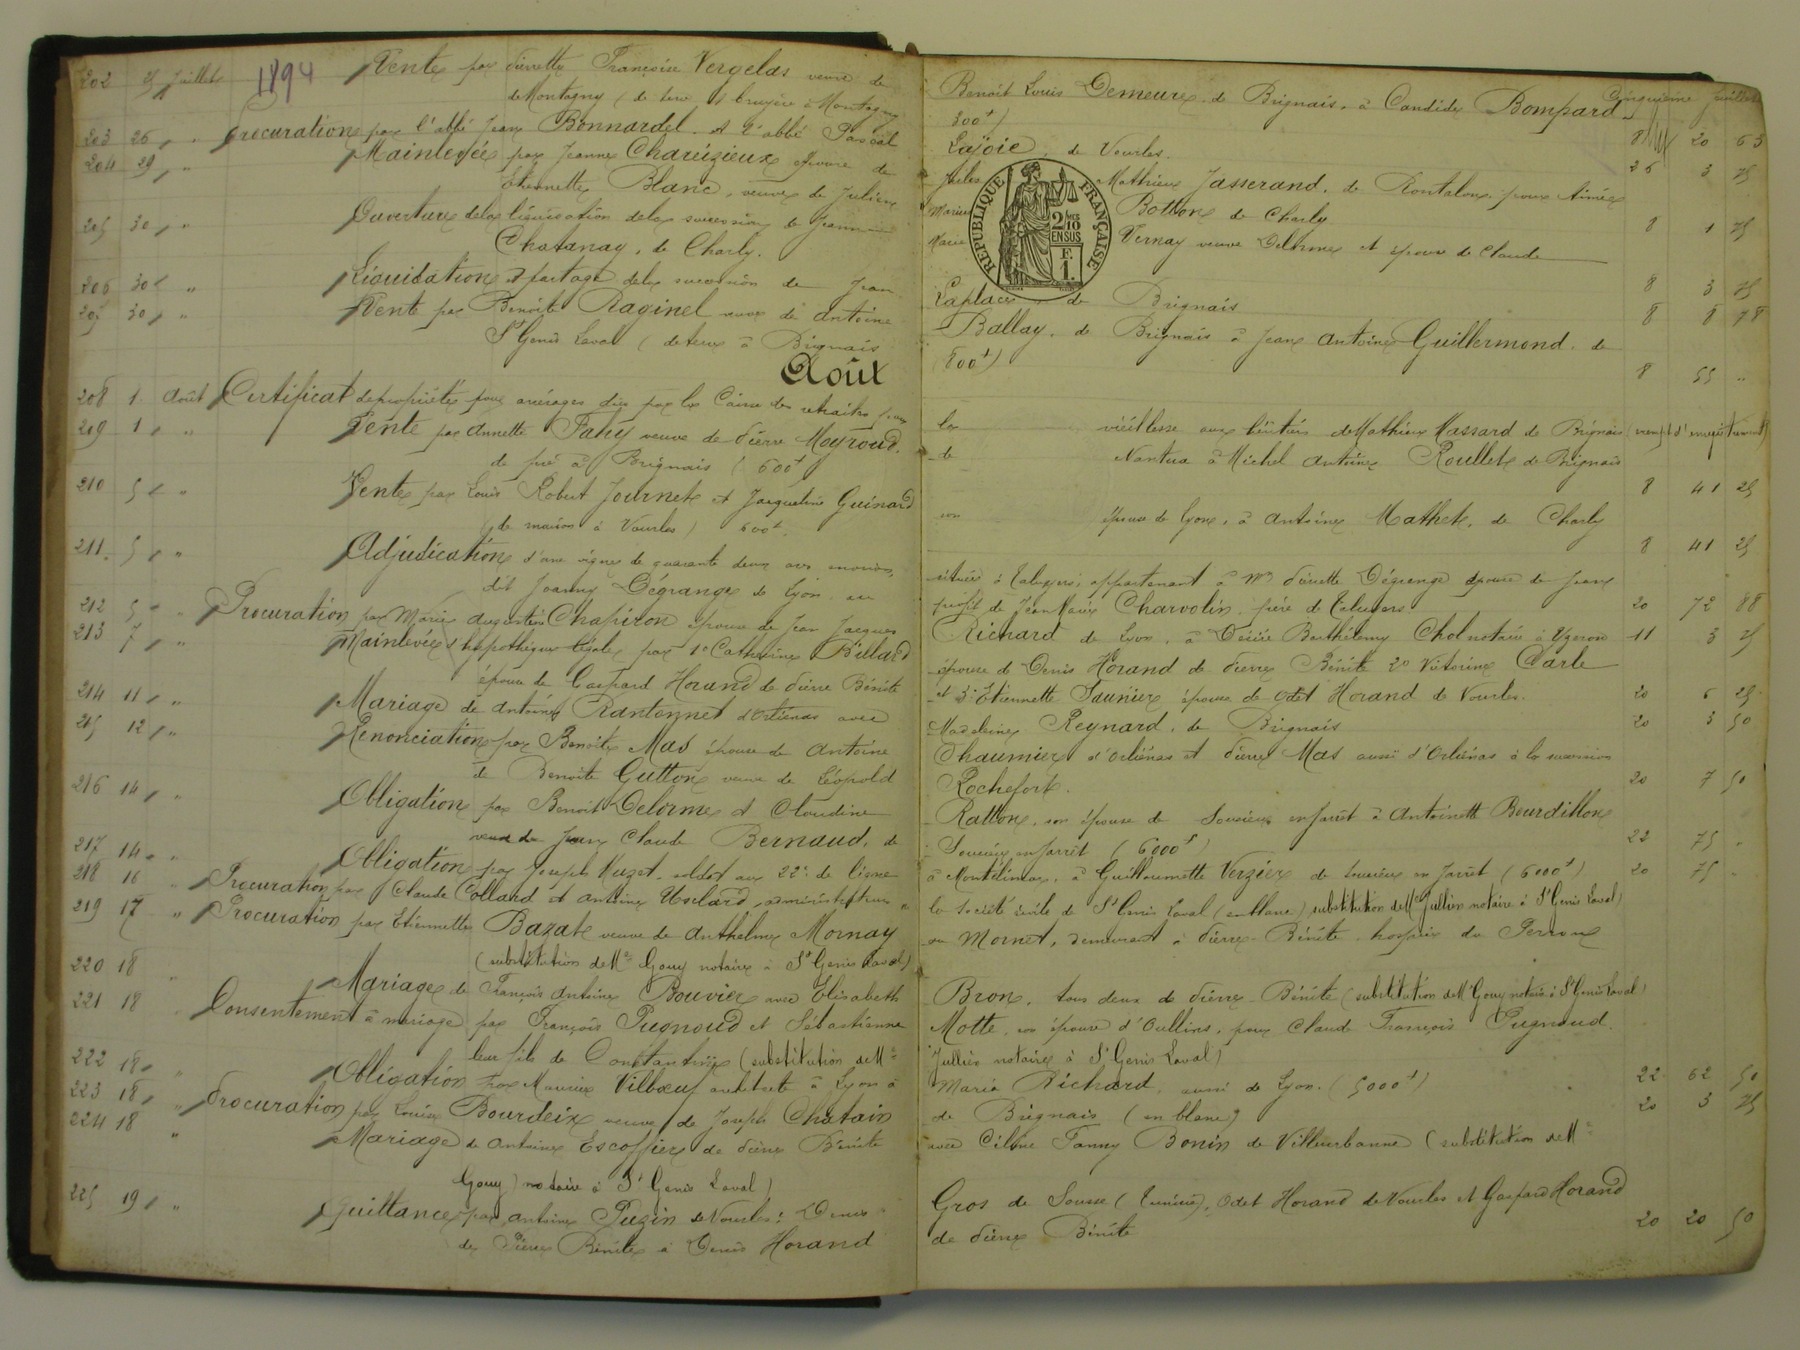 202 25 Juillet 1894 Vente par Pierrette Françoise Vergelas veuve de Benoit Louis Demeure de Brignais, à Candide Bompard
Cinquième feuillet
de Montagny (de terre et bruyère à Montagny 300f) 8 20 63
203 26 " Procuration par l'abbé Jean Bonnardel et l'abbé Pascal Lajoie de Vourles. 26 3 75
204 29 " Mainlevée par Jeanne Chareizieux épouse de Jules Mathieu Jasserand, de Rontalon, pour Aimée
Etiennette Blanc, veuve de Julien Marius Botton de Charly 8 1 75
205 30 " Ouverture de la liquidation de la succession de Jeanne Marie Vernay veuve Delorme et épouse de Claude
Chatanay, de Charly. 8 3 75
206 30 " Liquidation et partage de la succession de Jean Laplace de Brignais 8 8 78
207 30 " Vente par Benoite Raginel veuve de Antoine Ballay, de Brignais à Jean Antoine Guillermond, de
St Genis Laval (de terre à Brignais 800f) 8 55 "
Août
208 1 Août Certificat de propriété pour arrérages dûs par la Caisse des retraites pour la vieillesse aux héritiers de Mathieu Massard de Brignais (exempt d'enregistrement)
209 1 " Vente par Annette Fahy veuve de Pierre Mayroud, de Nantua à Michel Antoine Roullet de Brignais
de pré à Brignais (600f 8 41 25
210 5 " Vente par Louis Robert Journet et Jacqueline Guinard son épouse de Lyon, à Antoine Mathet, de Charly
(de maison à Vourles) 600f. 8 41 25
211 5 " Adjudication d'une vigne de quarante deux ares environ, située à Taluyers, appartenant à Me Pierrette Dégrange épouse de Jean
dit Joanny Dégrange de Lyon au profit de Jean Marie Charvolin père de Taluyers 20 72 88
212 5 " Procuration par Marie Augustine Chapiron épouse de Jean Jacques Richard de Lyon, à Désiré Barthélemy Chol notaire à Yzeron 11 3 75
213 7 " Mainlevée d'hypothèque légale par 1o Catherine Billard épouse de Denis Horand de Pierre Bénite 2o Victorine Carle
épouse de Gaspard Horand de Pierre Bénite et 3o Etiennette Saunier épouse de Odet Horand de Vourles. 20 6 25
214 11 " Mariage de Antoine Rantonnet d'Orliénas avec Madeleine Reynard, de Brignais 20 3 50
215 12 " Renonciation par Benoite Mas épouse de Antoine Chaumier d'Orliénas et Pierre Mas aussi d'Orliénas à la succession
de Benoite Gutton veuve de Léopold Rochefort. 20 7 50
216 14 " Obligation par Benoit Delorme et Claudine Ratton, son épouse de Soucieu en Jarrêt à Antoinette Bourdillon
veuve de Jean Claude Bernaud, de Soucieu en Jarrêt (6000f) 22 75 "
217 14 " Obligation par Joseph Muzet, soldat au 22e de ligne à Montélimar, à Guillaumette Verzier de Soucieu en Jarrêt (6000f) 20 75 "
218 16 " Procuration par Claude Collard et Antoine administrateurs de la Société civile de St Genis Laval (en blanc) substitution de Me Jullien notaire à St Genis Laval)
219 17 " Procuration par Etiennette Bazat veuve de Anthelme Mornay ou Mornet, demeurant à Pierre-Bénite, hospice du Perron
(substitution de Me Gouy notaire à St Genis Laval)
220 18 " Mariage de François Antoine Bouvier avec Elisabeth Bron, tous deux de Pierre-Bénite (substitution de Me Gouy notaire à St Genis Laval)
221 18 " Consentement à mariage par François Pugnoud et Sébastienne Motte, son épouse d'Oullins, pour Claude François Pugnoud
leur fils de Constantine (substitution de Me Jullien notaire à St Genis Laval)
222 18 " Obligation par Maurice Vilbœuf architecte à Lyon à Maria Richard, aussi de Lyon. (5000f) 22 62 50
223 18 " Procuration par Louise Bourdeix veuve de Joseph Chatain de Brignais (en blanc) 20 3 75
224 18 " Mariage de Antoine Escoffier de Pierre Bénite avec Céline Fanny Bonin de Villeurbanne (substitution de Me
Gouy notaire à St Genis Laval)
225 19 " Quittance par Antoine Puzin de Vourles: Denis Gros de Sousse (Tunisie), Odet Horand de Vourles et Gaspard Horand
de Pierre Bénite à Denis Horand de Pierre Bénite 20 20 50
RÉPUBLIQUE FRANÇAISE
2/10MES
EN SUS
F.
1.